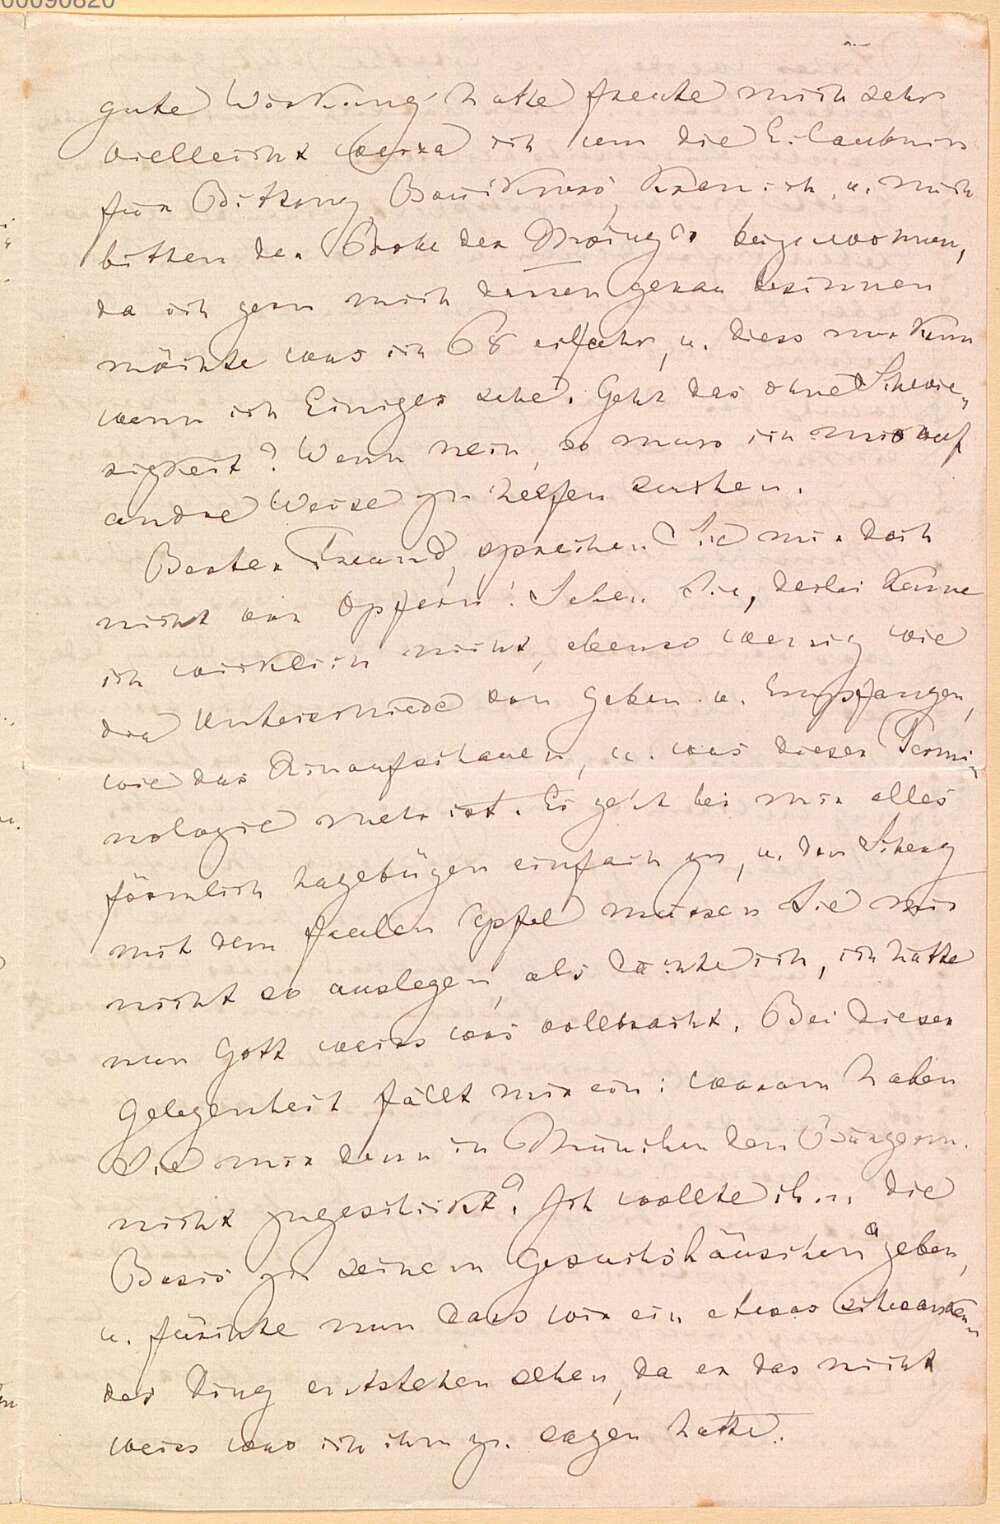 00090820
gute Wirkung hatte freute mich sehr
vielleicht werde ich um die Erlaubniss
für Bitten, u. mich
bitten der Probe der beizuwohnen,
da ich gern mich dessen genau besinnen
möchte was ich 68 erfuhr, u. diess nur kann
wenn ich Einiges sehe. Geht das ohne Schwie„
rigkeit? Wenn nein, so muss ich mir auf
andre Weise zu helfen suchen.
Bester Freund, sprechen Sie mir doch
nicht von Opfern! Sehen Sie, derlei kenne
ich wirklich nicht, ebenso wenig wie
die Unterschiede von Geben u. Empfangen,
wie das Hinaufschauen, u. was dieser Termi„
nologie mehr ist. Es geht bei mir alles
förmlich hagebüchen einfach zu, u. den Scherz
mit dem faulen Apfel müssen Sie mir
nicht so auslegen, als dächte ich, ich hätte
nun Gott weiss was vollbracht. Bei dieser
Gelegenheit fällt mir ein: warum haben
Sie mir denn in München den
nicht zugeschickt? Ich wollte ihm die
Basis zu seinem Gesichtshäuschen geben,
u. fürchte nun dass wir ein etwas schwanken„
des Ding entstehen sehen, da er das nicht
weiss was ich ihm zu sagen hatte.